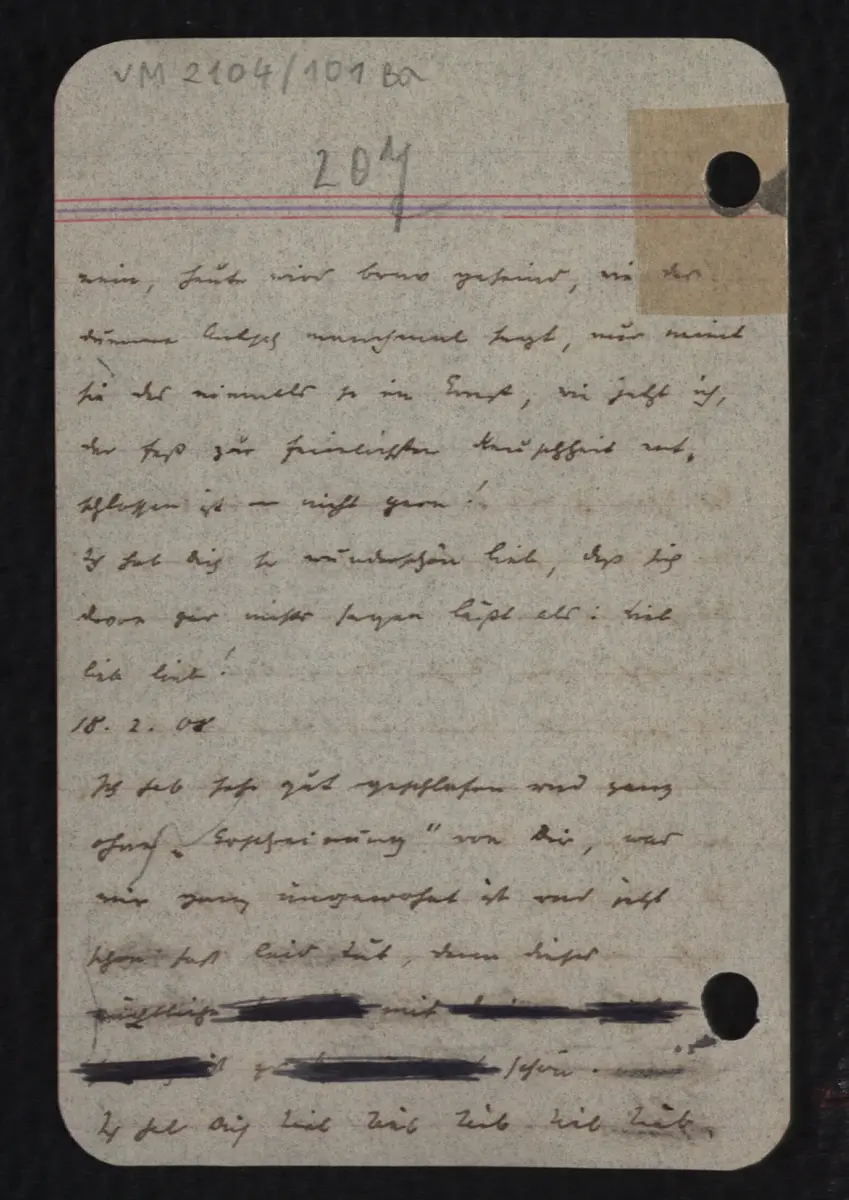 VM 2104/101 Ba
207
nein, heute wird brav geheind, wie das
dumme Liebsch manchmal sagt, nur meint
sie das niemals so im Ernst, wie jetzt ich,
der fest zur Keuschheit ent-
schlossen ist – nicht gern!
Ich hab Dich so wunderschön lieb, daß sich
davon gar nichts sagen läßt als: lieb
lieb lieb!
18. 2. 08
Ich hab sehr gut geschlafen und ganz
ohne „Erscheinung" von Dir, was
mir ganz ungewohnt ist und jetzt
schon fast leid tut, denn dieses
nächtliche mit
schön.
Ich hab Dich lieb lieb lieb lieb lieb.